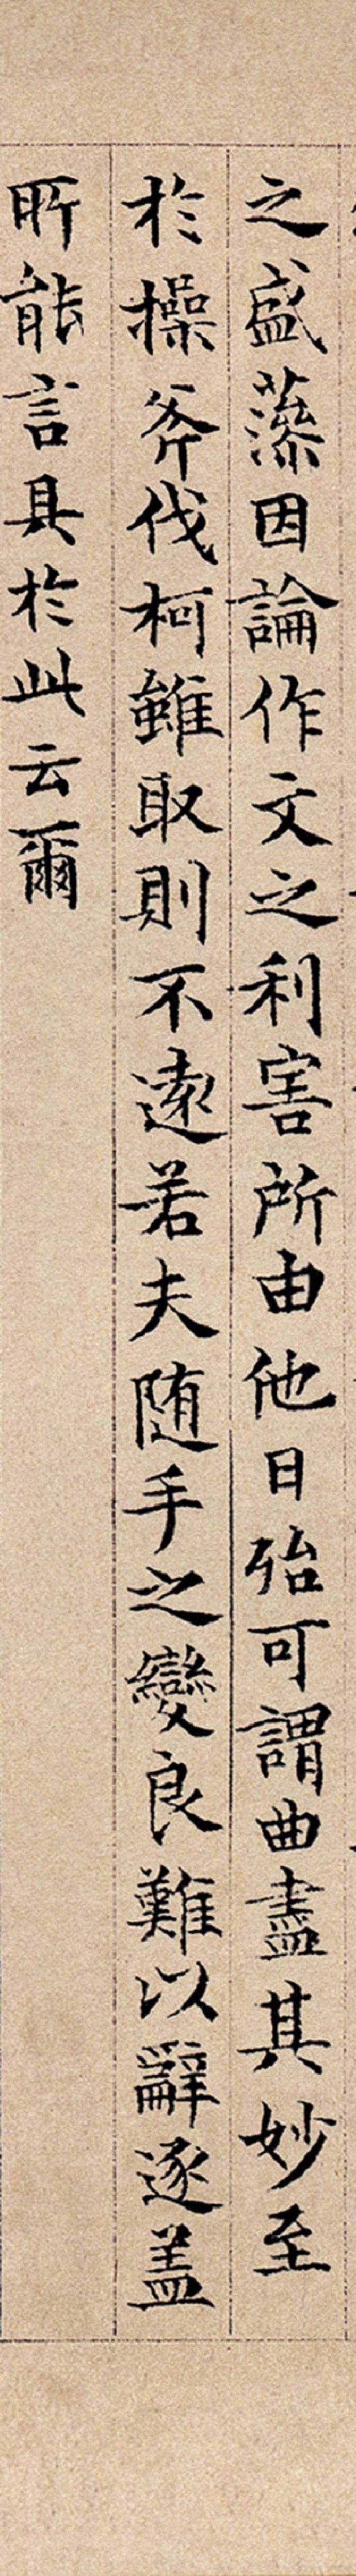 之盛藻因論作文之利害所由他日殆可謂曲盡其妙至
於操斧伐柯雖取則不遠若夫随手之變良難以辭逐盖
所能言具於此云爾